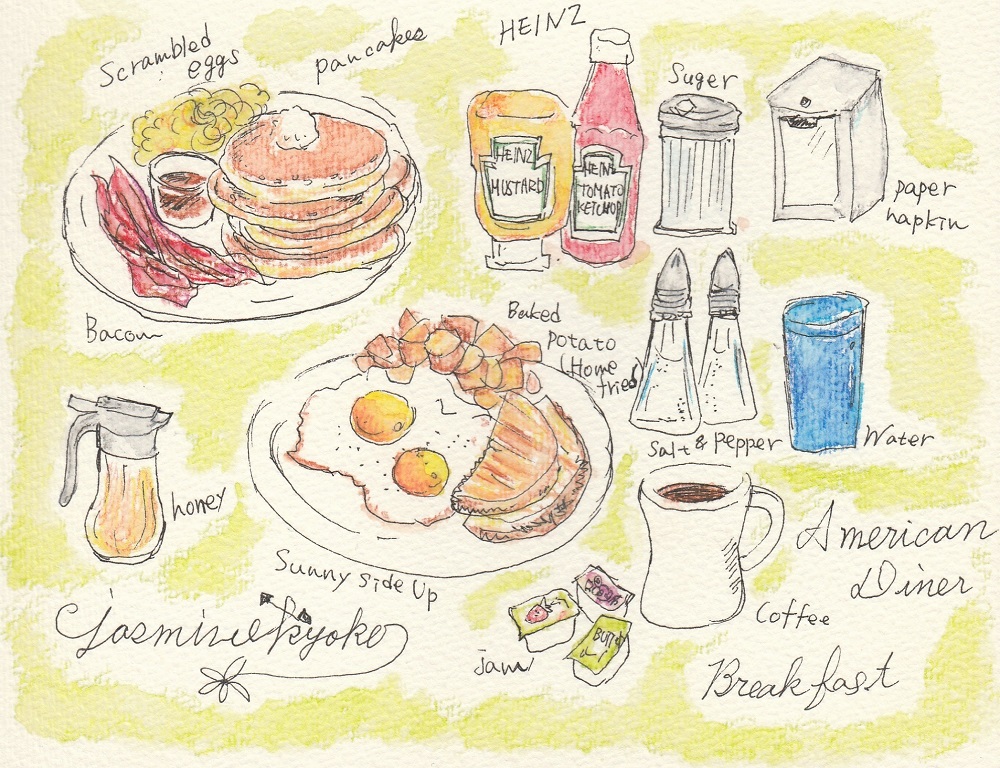 Scrambled
eggs
pancakes
HEINZ
HEINZ
MUSTARD
HEINZ
TOMATO
KETCHUP
Suger
paper
napkin
Bacon
Baked
potato
(Home
fries)
Salt & Pepper
Water
honey
Sunny Side Up
American
Diner
Coffee
jasminekyoko
jam
Breakfast